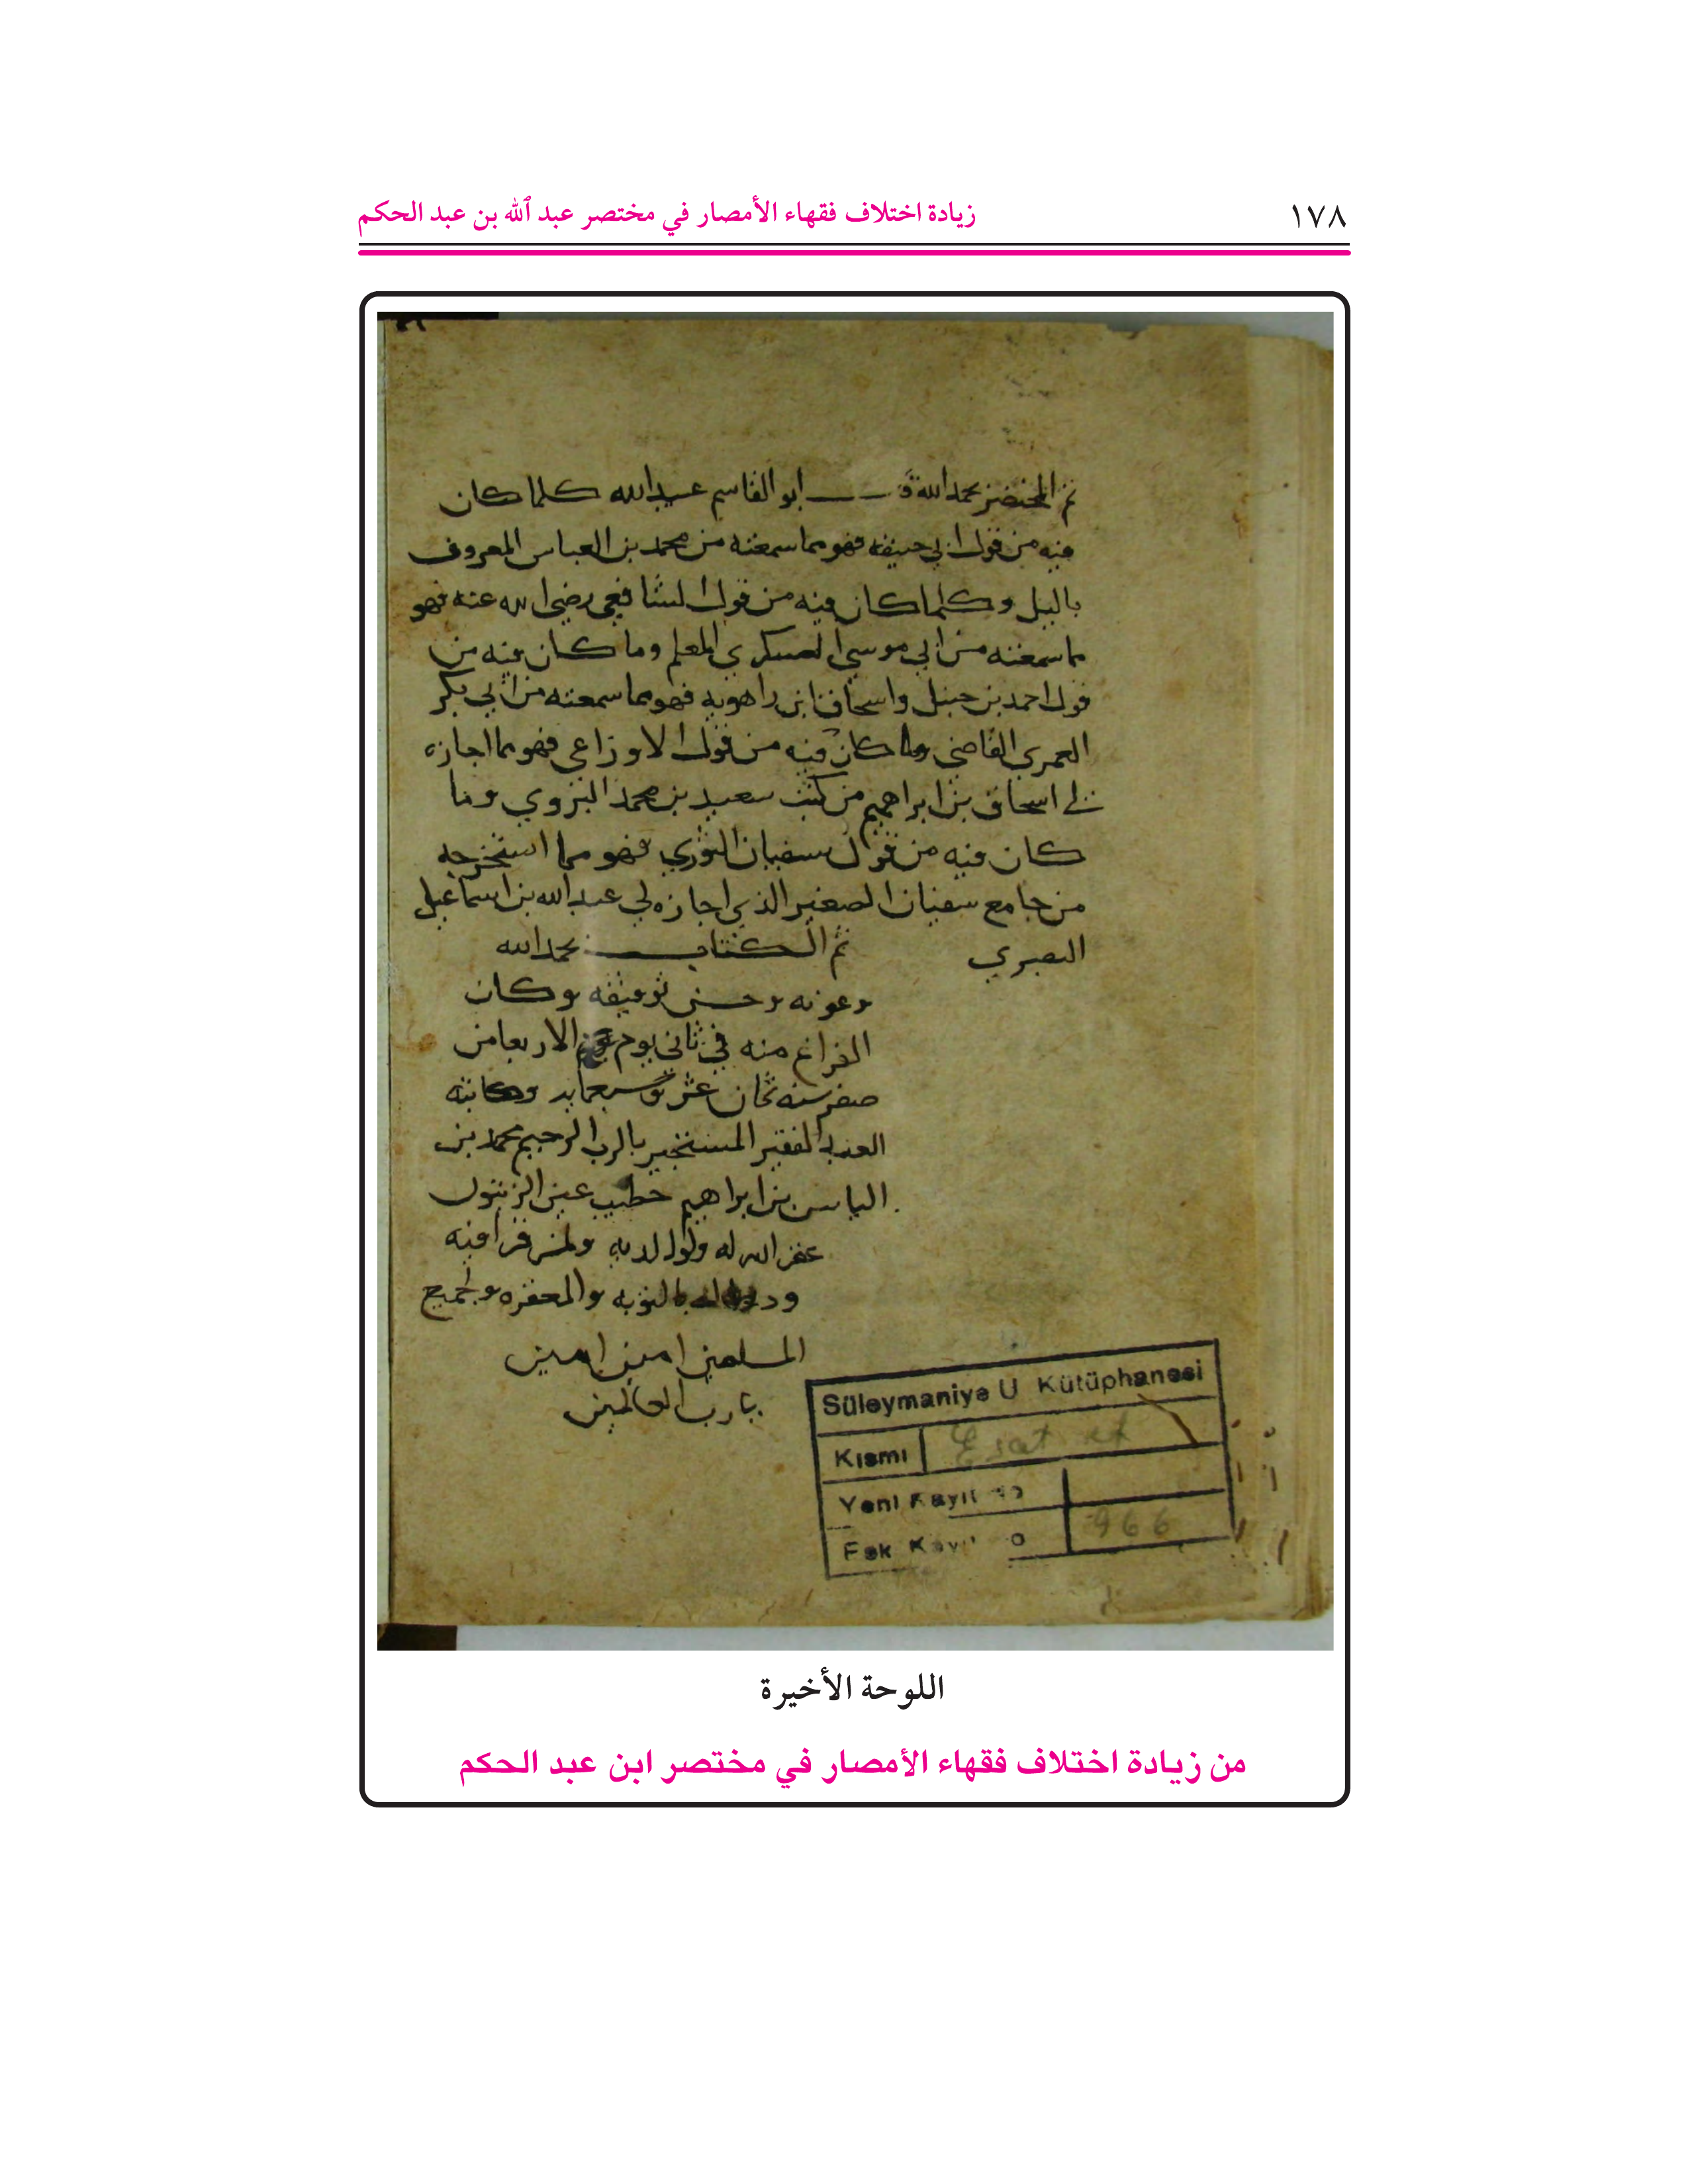 ١٧٨
زيادة اختلاف فقهاء الأمصار في مختصر عبد ٱللّٰه بن عبد الحكم
تم المختصر بحمد الله ق ابو القاسم عبيد الله كلما كان
فيه من قول ابي حنيفه فهو مما سمعته من محمد بن العباس المعروف
بالبل وكلما كان فيه من قول الشافعي رضي الله عنه فهو
مما سمعته من ابي موسي العسكري المعلم وما كان فيه من
قول احمد بن حنبل واسحاق ابن راهويه فهو مما سمعته من ابي بكر
العمري القاضي وما كان فيه من قول الاوزاعي فهو مما اجازه
لي اسحاق بن ابراهيم من كتب سعيد بن محمد البزوي وما
كان فيه من قول سفيان الثوري فهو مما استخرجه
من جامع سفيان الصغير الذي اجازه لي عبد الله بن اسماعيل
البصري تم الكتاب بحمد الله
وعونه وحسن توفيقه وكان
الفراغ منه في ثاني يوم الاربعا من
صفر سنه ثمان عشر وسبعمايه وكاتبه
العبد الفقير المستجير بالرب الرحيم محمد بن
الياس بن ابراهيم خطيب عين الزيتون
غفر الله له ولوالديه ولمن قرا فيه
بالتوبه والمغفره ولجميع
المسلمين امين امين
يارب العالمين
Süleymaniye U Kütüphanesi
Kısmı Esat ef
Yeni Kayıt No
Eski Kayıt No 966
اللوحة الأخيرة
من زيادة اختلاف فقهاء الأمصار في مختصر ابن عبد الحكم